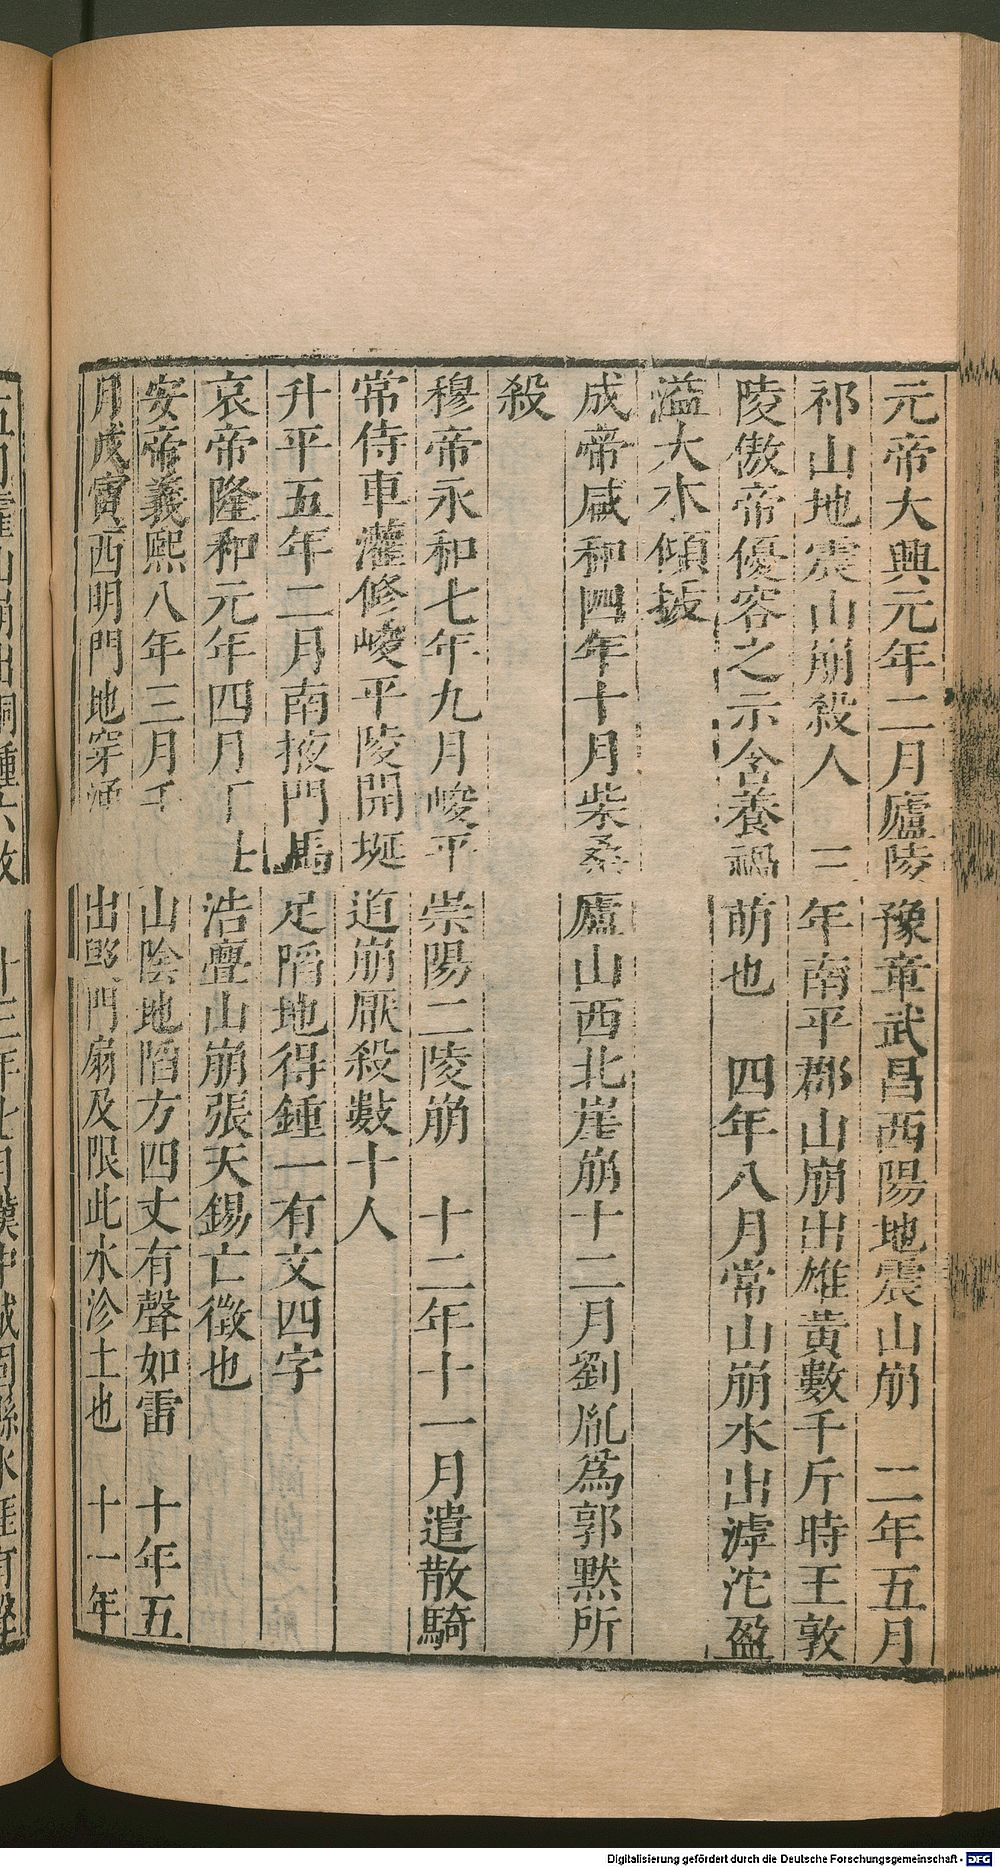 元帝大興元年二月廬陵豫章武昌西陽地震山崩　二年五月
祁山地震山崩殺人　三年南平郡山崩出雄黃數千斤時王敦
陵傲帝優容之示含養禍萌也　四年八月常山崩水出滹沱盈
溢大木傾拔
成帝咸和四年十月柴桑廬山西北崖崩十二月劉胤為郭黙所
殺
穆帝永和七年九月峻平崇陽二陵崩　十二年十一月遣散騎
常侍車灌修峻平陵開埏道崩厭殺數十人
升平五年二月南掖門馬足陷地得鍾一有文四字
哀帝隆和元年四月丁丑浩亹山崩張天錫亡徵也
安帝義熙八年三月壬山陰地陷方四丈有聲如雷　十年五
月戊寅西明門地穿涌出毁門扇及限此水沴土也　十一年
五月霍山崩出銅鍾六枚　十三年七月漢中城固縣水涯有聲
Digitalisierung gefördert durch die Deutsche Forschungsgemeinschaft - DFG